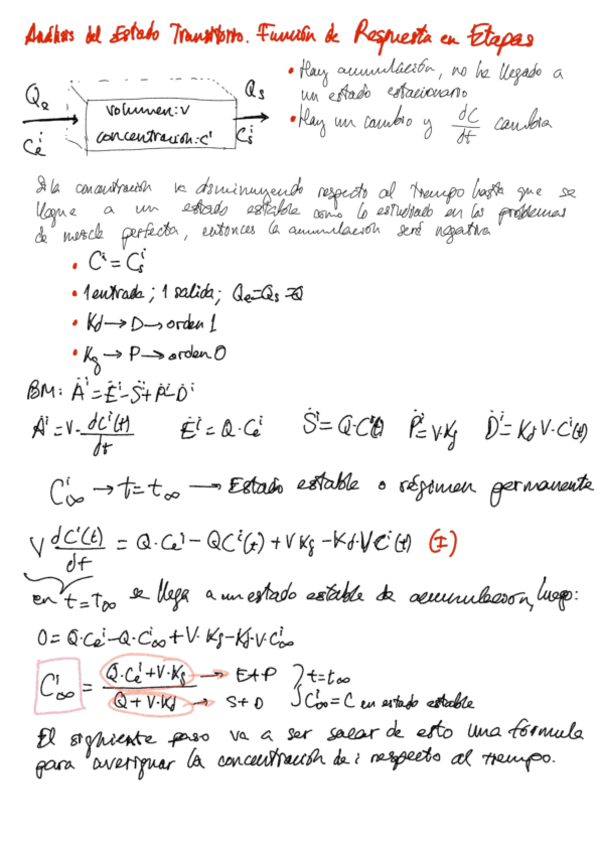 Análisis del Estado Transitorio. Función de Respuesta en Etapas
• Hay acumulación, no ha llegado a
un estado estacionario
• Hay un cambio y dC/dt cambia
Qe
Ceⁱ
volumen: V
concentración: Cⁱ
Qs
Csⁱ
Si la concentración va disminuyendo respecto al tiempo hasta que se
llegue a un estado estable como lo estudiado en los problemas
de mezcla perfecta, entonces la acumulación será negativa
• Cⁱ = Csⁱ
• 1 entrada; 1 salida; Qe=Qs=Q
• Kd → D → orden 1
• Kg → P → orden 0
BM: Ȧⁱ = Ėⁱ - Ṡⁱ + Ṗⁱ - Ḋⁱ
Ȧⁱ = V · dCⁱ(t)/dt   Ėⁱ = Q · Ceⁱ   Ṡⁱ = Q · Cⁱ(t)   Ṗⁱ = V · Kg   Ḋⁱ = Kd V · Cⁱ(t)
C∞ⁱ → t = t∞ → Estado estable o régimen permanente
V dCⁱ(t)/dt = Q · Ceⁱ - QCⁱ(t) + V Kg - Kd · V Cⁱ(t) (I)
en t = T∞ se llega a un estado estable de acumulacion, luego:
0 = Q · Ceⁱ - Q · C∞ⁱ + V · Kg - Kd · V · C∞ⁱ
C∞ⁱ = (Q · Ceⁱ + V · Kg)/(Q + V · Kd) → E+P → S+D } t = t∞ C∞ⁱ = C en estado estable
El siguiente paso va a ser sacar de esto una fórmula
para averiguar la concentración de i respecto al tiempo.